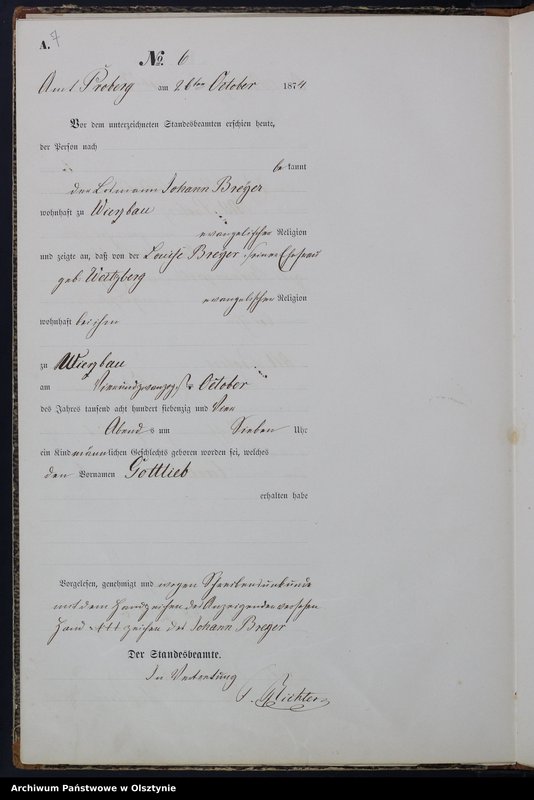 A. 7
No. 6
Amt Proberg am 26ten October 1874
Vor dem unterzeichneten Standesbeamten erschien heute,
der Person nach
bekannt
der Losmann Johann Breger
wohnhaft zu Wierzbau
evangelischer Religion
und zeigte an, daß von der Louise Breger seiner Ehefrau
geb. Weitzberg
evangelischer Religion
wohnhaft bei ihm
zu Wierzbau
am Vierundzwanzigst en October
des Jahres tausend acht hundert siebenzig und Vier
Abends um Sieben Uhr
ein Kind männlichen Geschlechts geboren worden sei, welches
den Vornamen Gottlieb
erhalten habe
Vorgelesen, genehmigt und wegen Schreibensunkunde
mit dem Handzeichen des Anzeigenden versehen
Hand +++ zeichen des Johann Breger
Der Standesbeamte.
In Vertretung
Richter
Archiwum Państwowe w Olsztynie